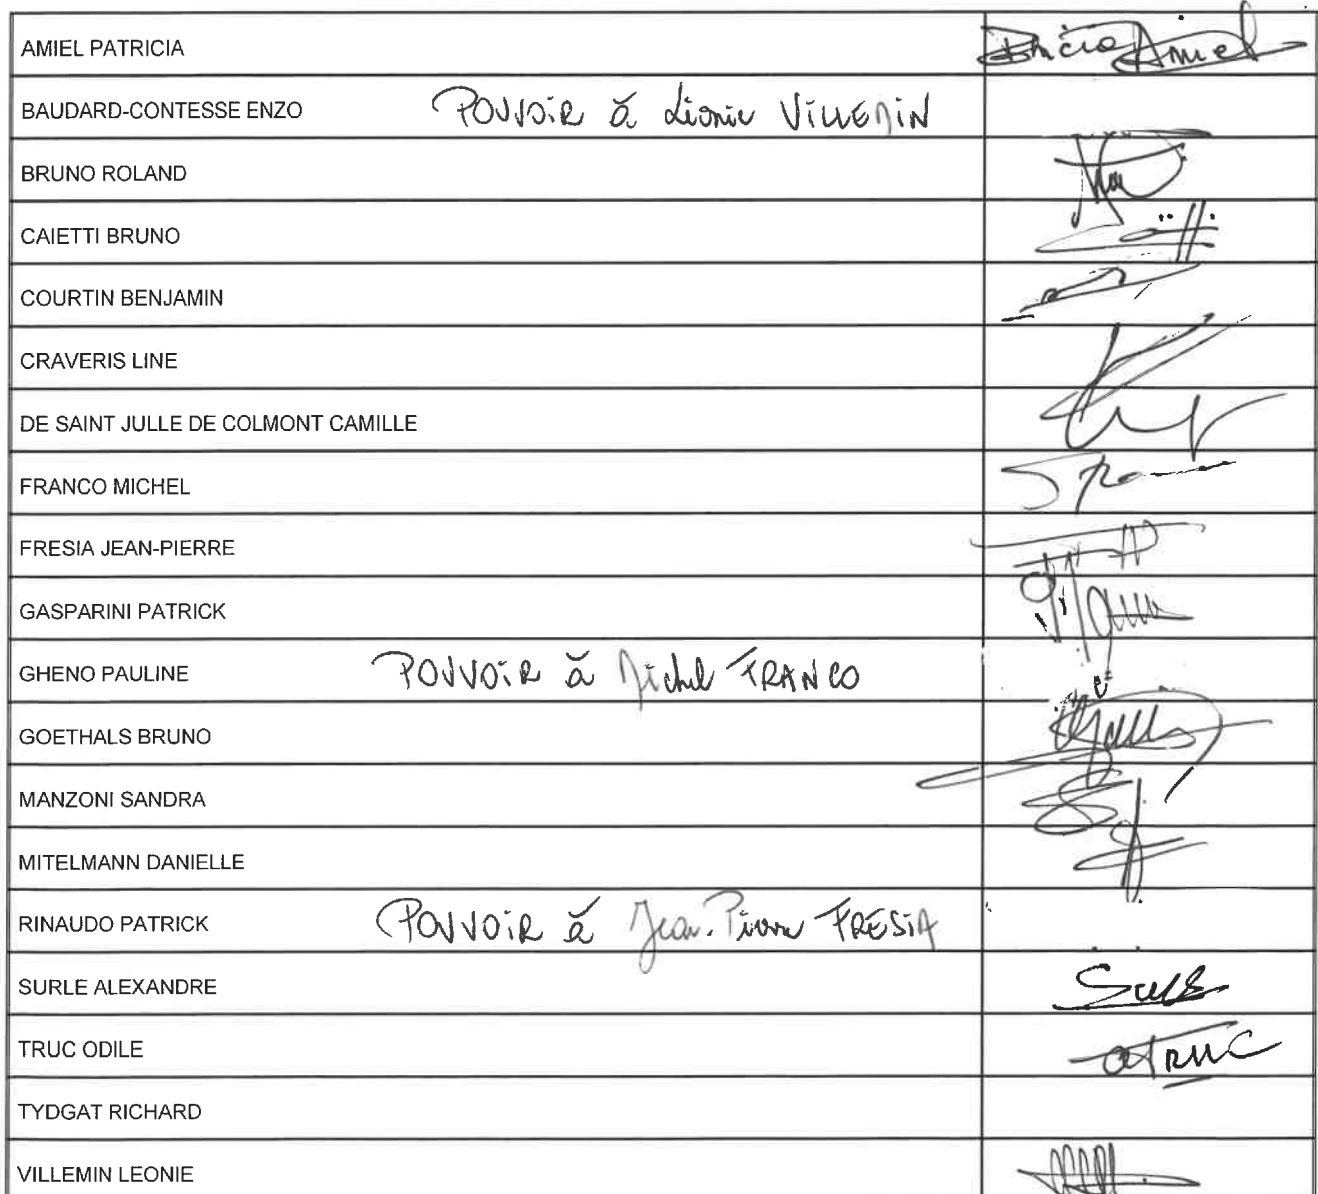 AMIEL PATRICIA Patricia Amiel
BAUDARD-CONTESSE ENZO POUVOIR à Léonie VILLEMIN
BRUNO ROLAND
CAIETTI BRUNO
COURTIN BENJAMIN
CRAVERIS LINE
DE SAINT JULLE DE COLMONT CAMILLE
FRANCO MICHEL
FRESIA JEAN-PIERRE
GASPARINI PATRICK
GHENO PAULINE POUVOIR à Michel FRANCO
GOETHALS BRUNO
MANZONI SANDRA
MITELMANN DANIELLE
RINAUDO PATRICK POUVOIR à Jean-Pierre FRESIA
SURLE ALEXANDRE Surle
TRUC ODILE O TRUC
TYDGAT RICHARD
VILLEMIN LEONIE